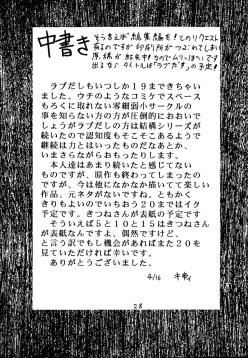 中書き
そうきえば総集編を!とのリクエスト
有るのですが印刷所がつぶれてしまい
原稿が紛失中!なのでムリっぽいです
出るなら タイトルは「ラブだす」の予定!
ラブだしもいつしか19まできちゃい
ました。ウチのようなコミケでスペース
もろくに取れない零細弱小サークルの
事を知らない方の方が圧倒的におおいで
しょうがラブだしの方は結構シリーズが
続いたので認知度もそこそこあるようで
継続は力とはいったものだなあとか、
いまさらながらおもったりします。
本人達はあまり続いた感じてない
ものですが、原作も終わっちゃいました
のですが、今は他になかなか描いてて楽しい
作品、元ネタがないですね。ともかく
きりもよいのでいちおう20まではイク
予定です。きつねさんが表紙の予定です
そういえば5と10と15はきつねさん
が表紙なんですよ、偶然ですけど、
と言う訳でもし機会があればまた20を
見ていただければ幸いです。
ありがとうございました。
4/16
28